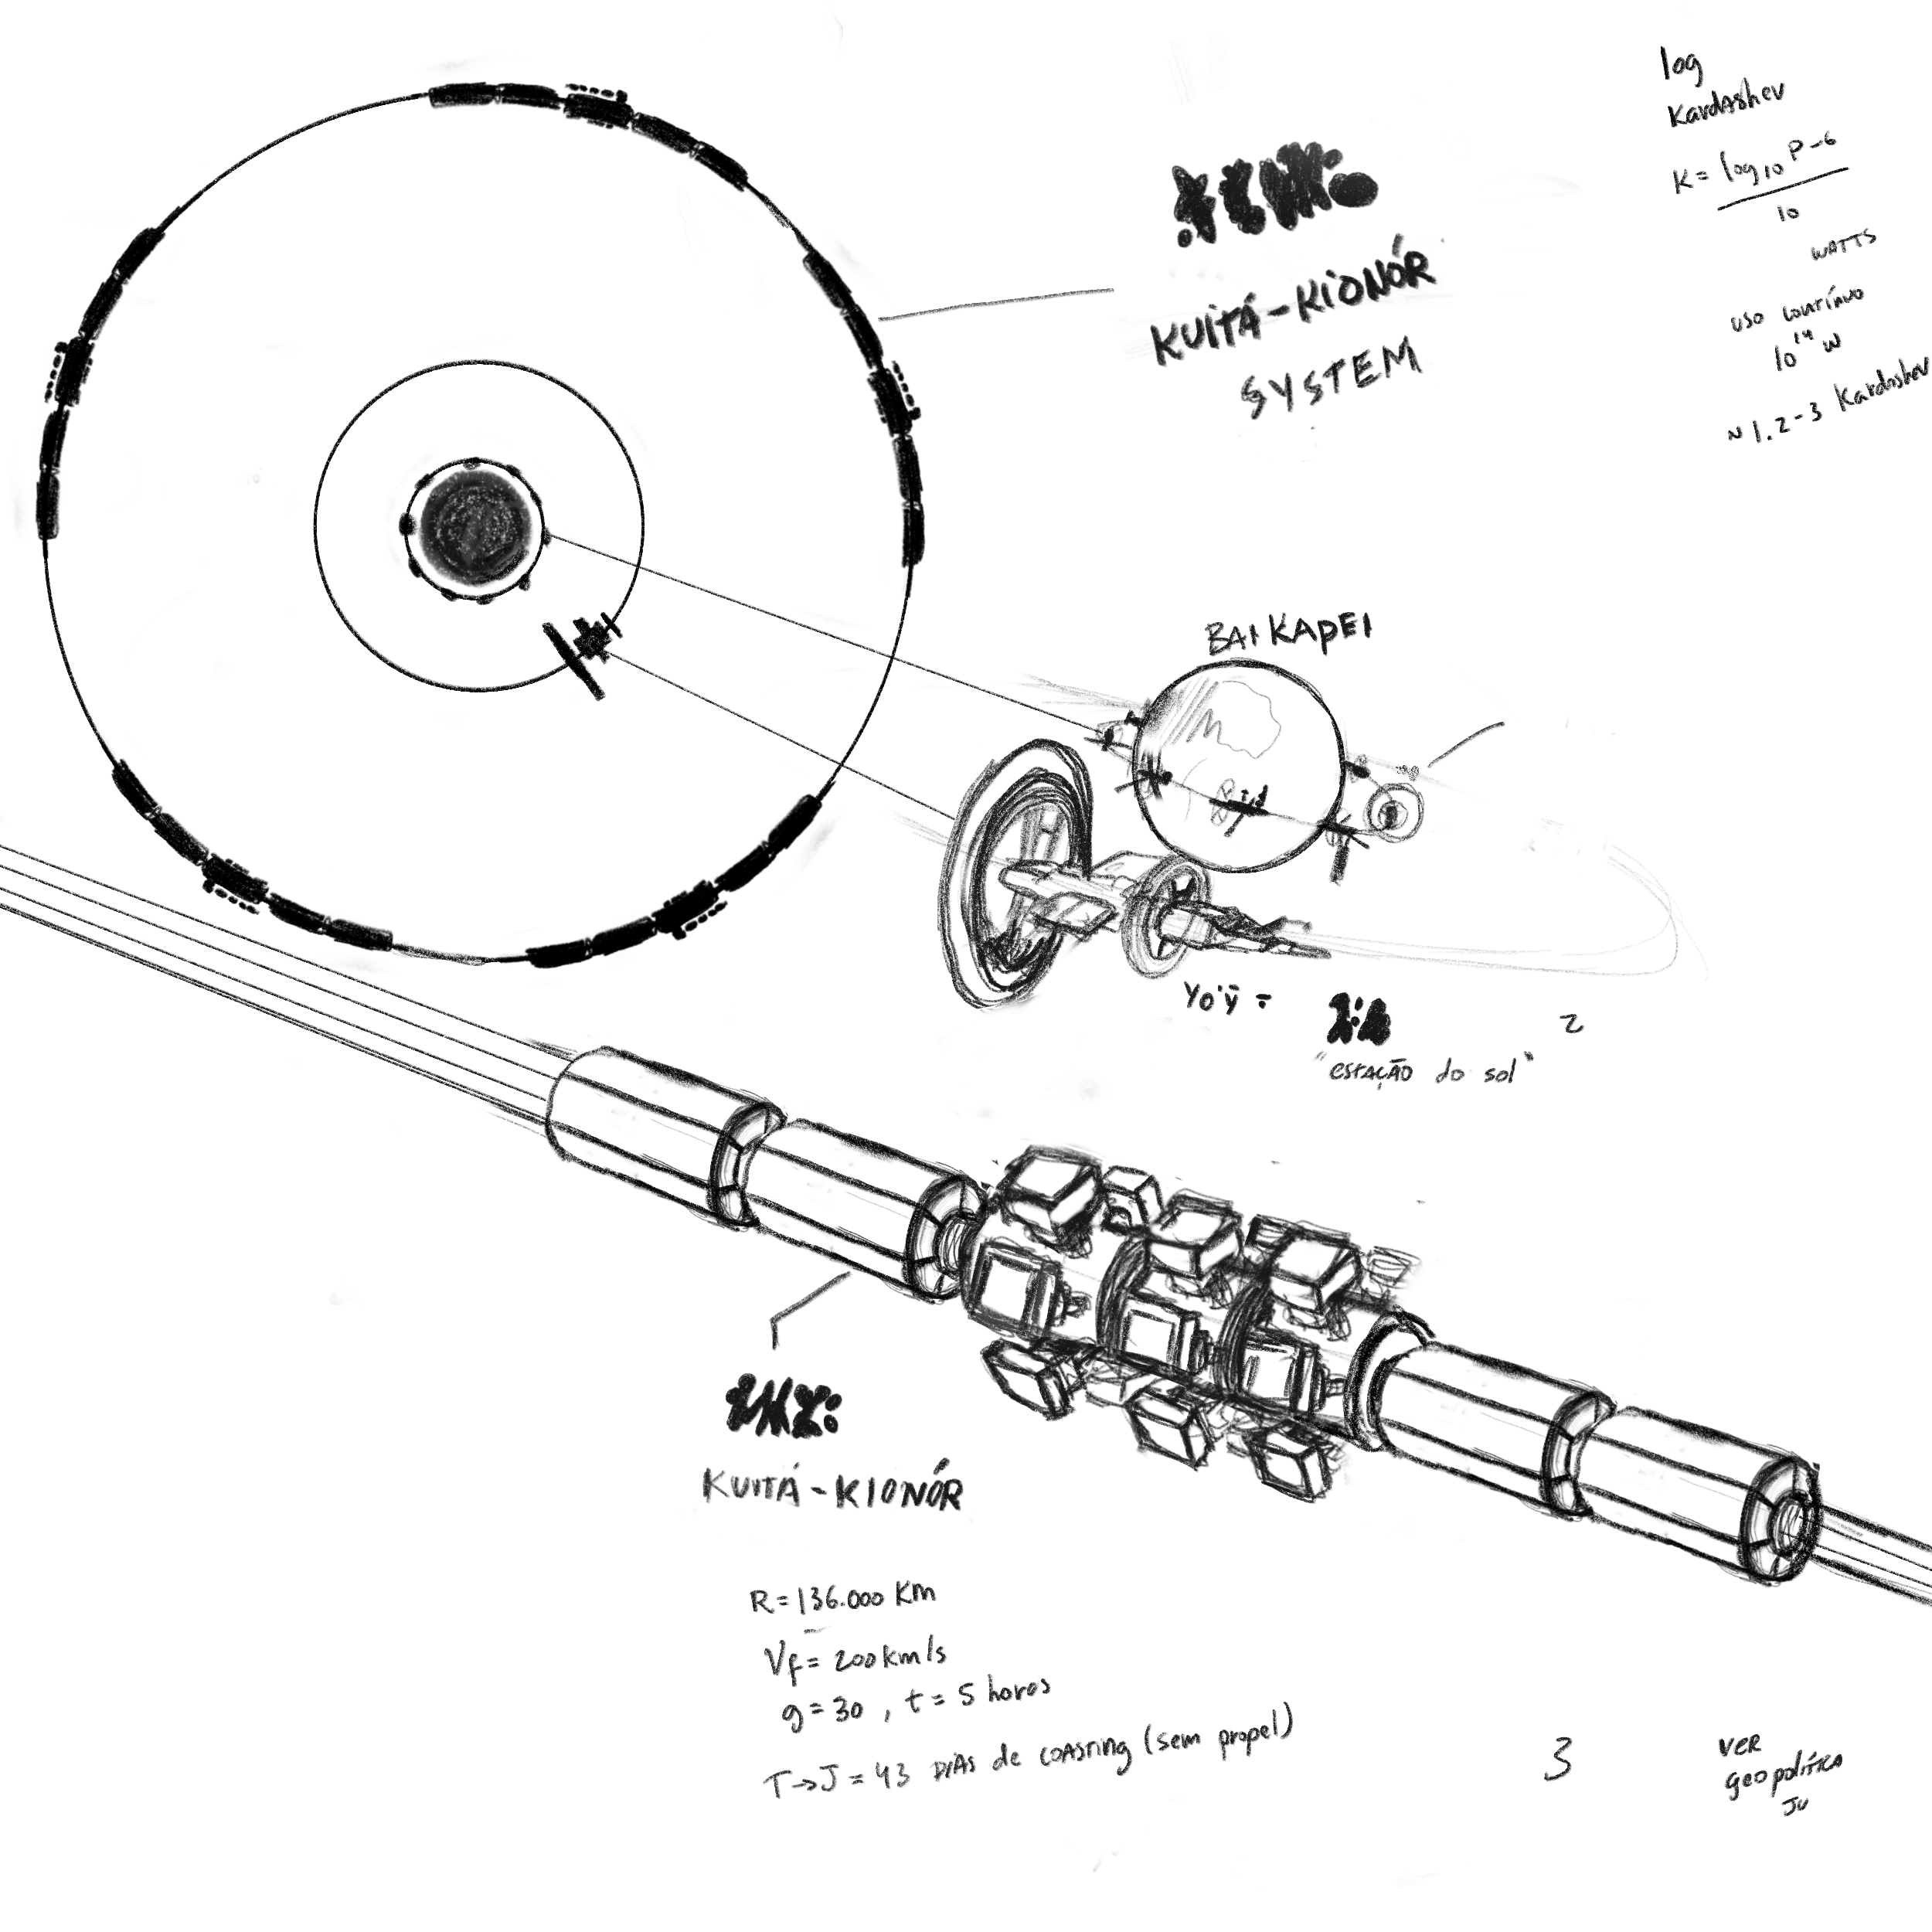 log
Kardashev
K = log10 P - 6
10
WATTS
uso contínuo
10^14 W
~ 1.2 - 3 Kardashev
KUITÁ-KIONÓR
SYSTEM
BAIKAPEI
YO'Ȳ =
"estação do sol"
2
KUITÁ-KIONÓR
R = 136.000 Km
Vf = 200 km/s
g = 30 , t = 5 horas
T → J = 43 DIAS de coasting (sem propel)
3
VER
geopolítica
JU